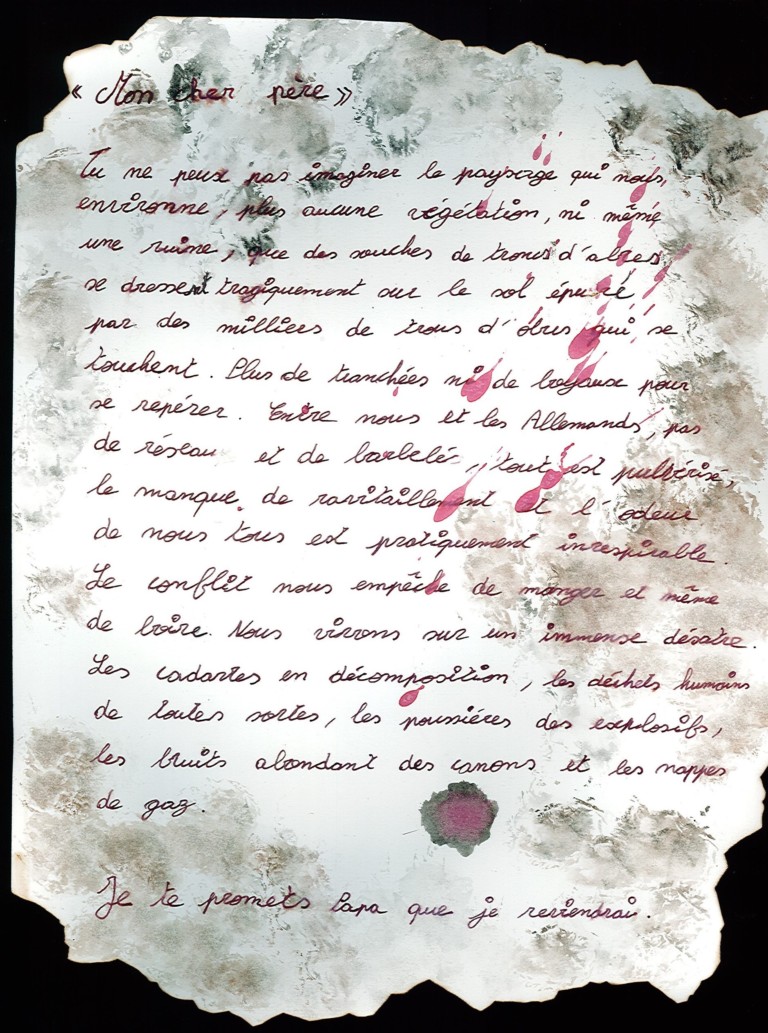 « Mon cher père »
Tu ne peux pas imaginer le paysage qui nous,
environne, plus aucune végétation, ni même
une ruine, que des souches de troncs d'abres,
se dressent tragiquement sur le sol épuisé,
par des milliers de trous d'obus qui se
touchent. Plus de tranchées ni de boyaux pour
se repérer. Entre nous et les Allemands, pas
de réseau et de barbelé, tout est pulvérisé,
le manque de ravitaillement et l'odeur
de nous tous est pratiquement irrespirable.
Le conflit nous empêche de manger et même
de boire. Nous vivons sur un immense désatre.
Les cadavres en décomposition, les déchets humains
de toutes sortes, les poussiéres des explosifs,
les bruits abondant des canons et les nappes
de gaz.
Je te promets Papa que je reviendrai.